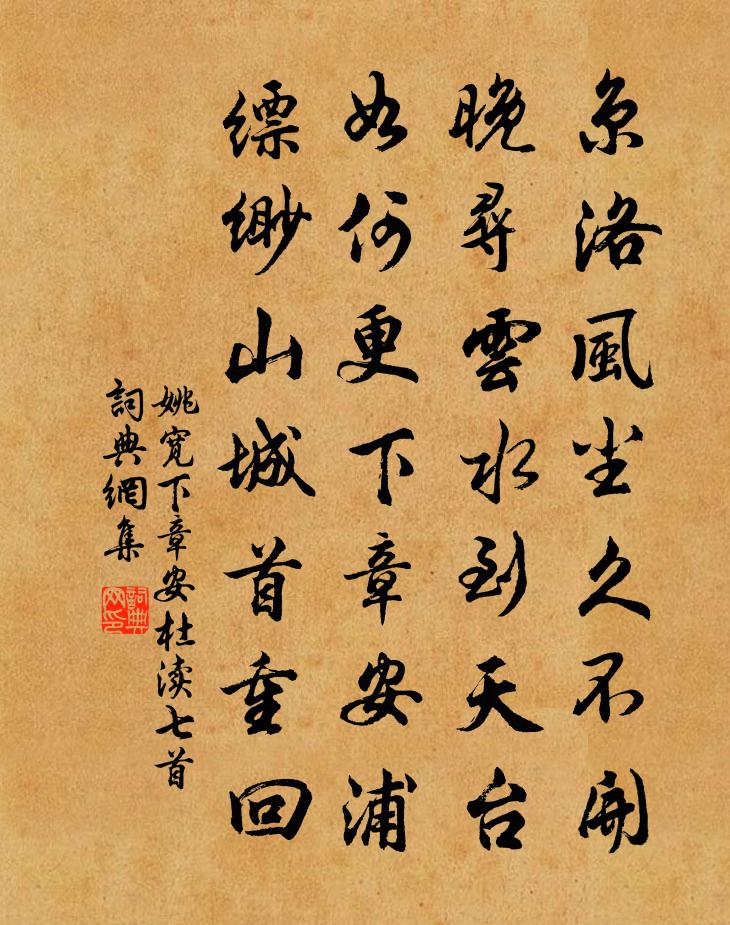 京洛風尘久不開
晚尋雲水到天台
如何更下章安浦
缥緲山城首重回
姚寬下章安杜渎七首
詞典網集
詞典网印